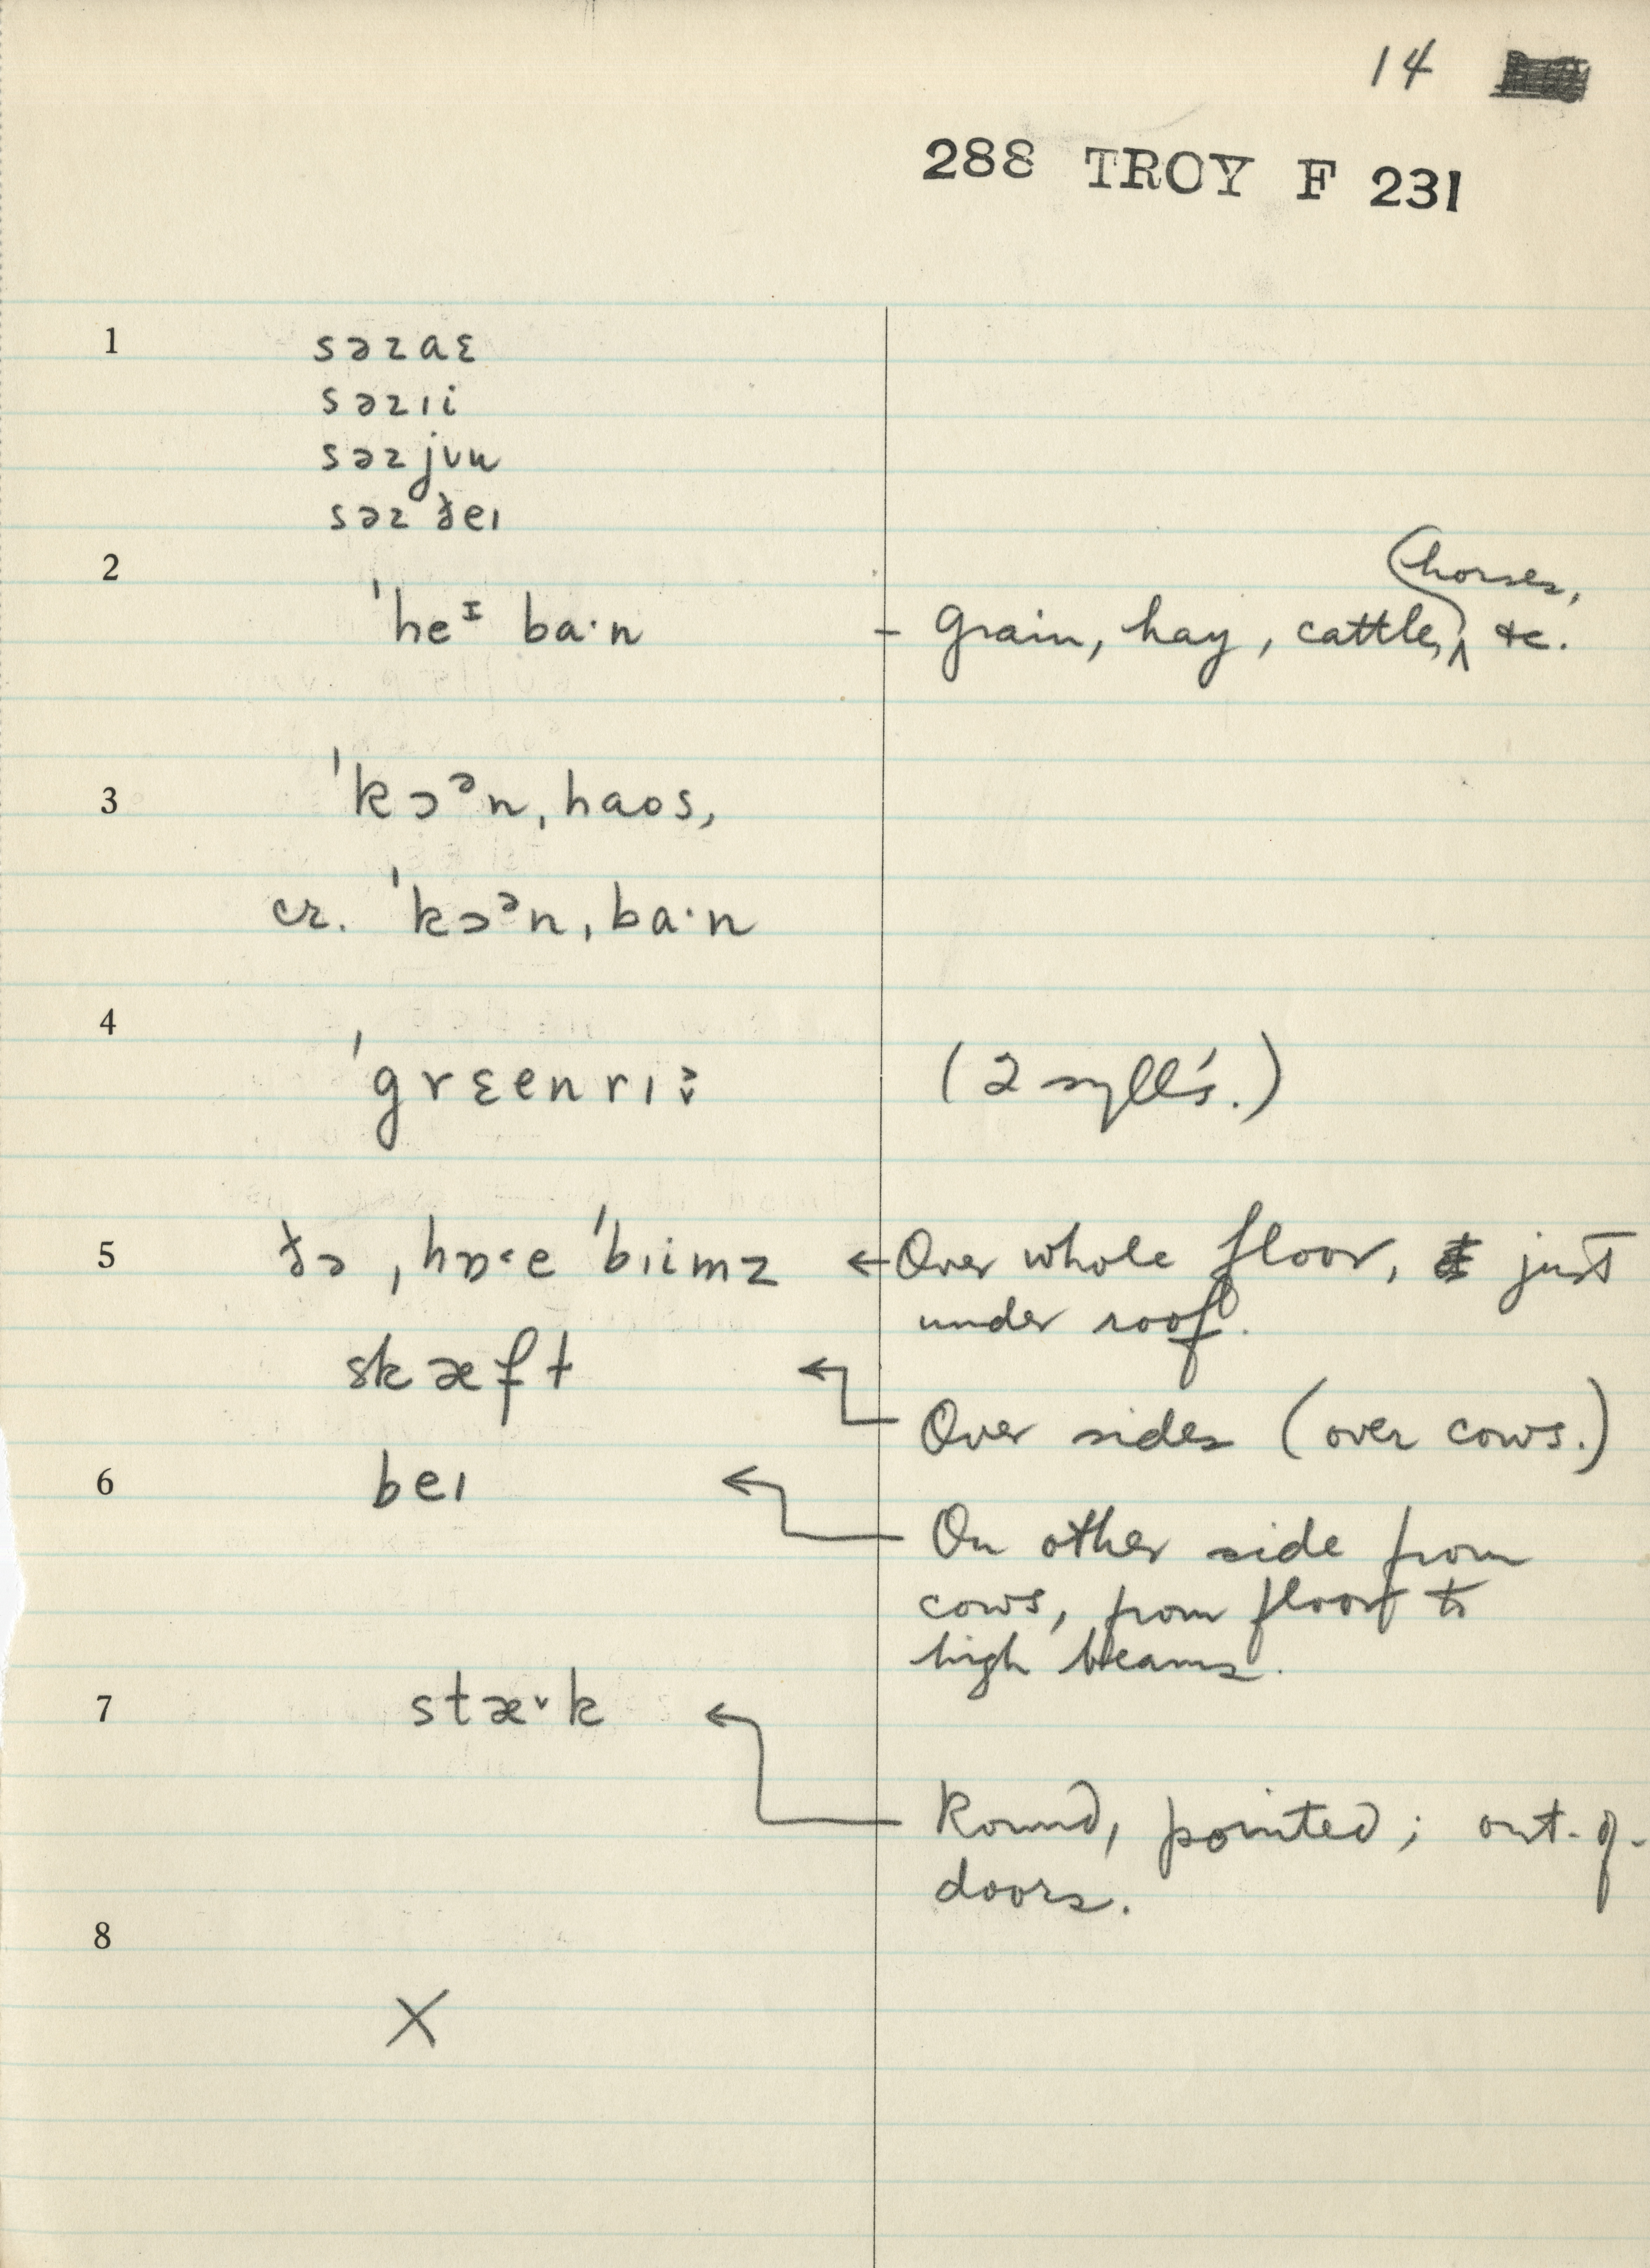 14
288 TROY F 231
1 səzaɛ
səzɪi
səzjʊu
səz ðeɪ
2
ˈheᴵ ba·n - Grain, hay, cattle, horses, &c.
3 ˈkɔᵊn ˌhaos,
cr. ˈkɔᵊn ˌba·n
4
ˈgrɛenrɪ (2 syll's.)
5 ðə ˌhɒ˂e ˈbɪimz ← Over whole floor, just
under roof.
skæft ←
Over sides (over cows.)
6 beɪ ←
On other side from
cows, from floor to
high beams.
7 stæ˅k ←
Round, pointed; out-of-
doors.
8
X